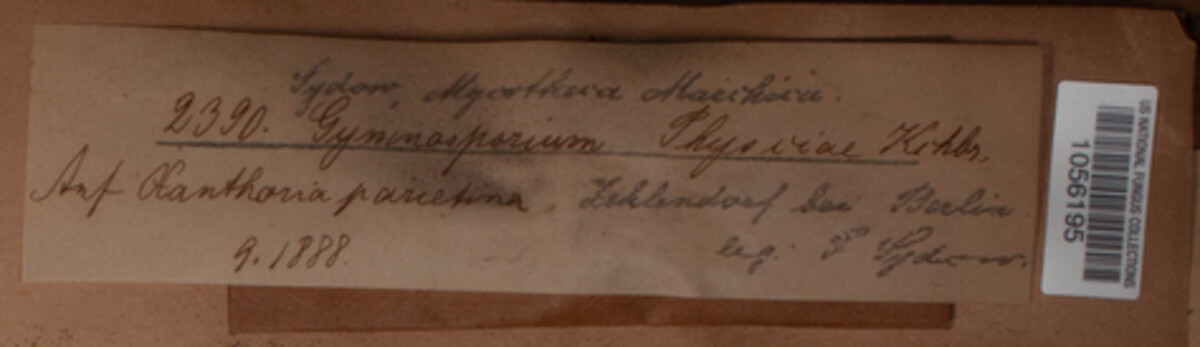 Sydow, Mycotheca Marchica.
2390. Gymnosporium Physciae Kchbr.
Auf Xanthoria parietina, Zehlendorf bei Berlin
9. 1888. leg. P Sydow.
US NATIONAL FUNGUS COLLECTIONS
1056195